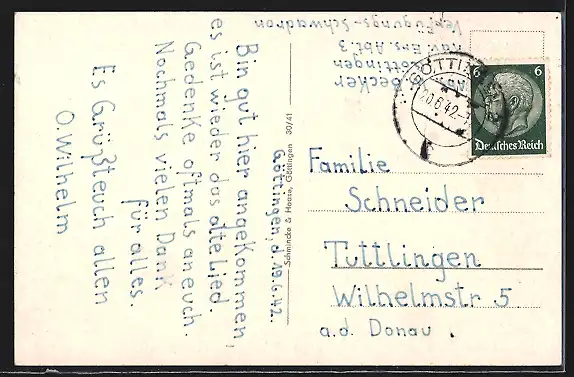 Becker
Göttingen
Kav. Ers. Abt. 3
Verfügungs-Schwadron
GÖTTINGEN
20.6.42.
6 6
Deutsches Reich
Göttingen, d. 19.6.42.
Bin gut hier angekommen,
es ist wieder das alte Lied.
Gedenke oftmals an euch.
Nochmals vielen Dank
für alles.
Es Grüßt euch allen
O. Wilhelm
Schmincke & Haase, Göttingen 30/41
Familie
Schneider
Tuttlingen
Wilhelmstr 5
a.d. Donau.